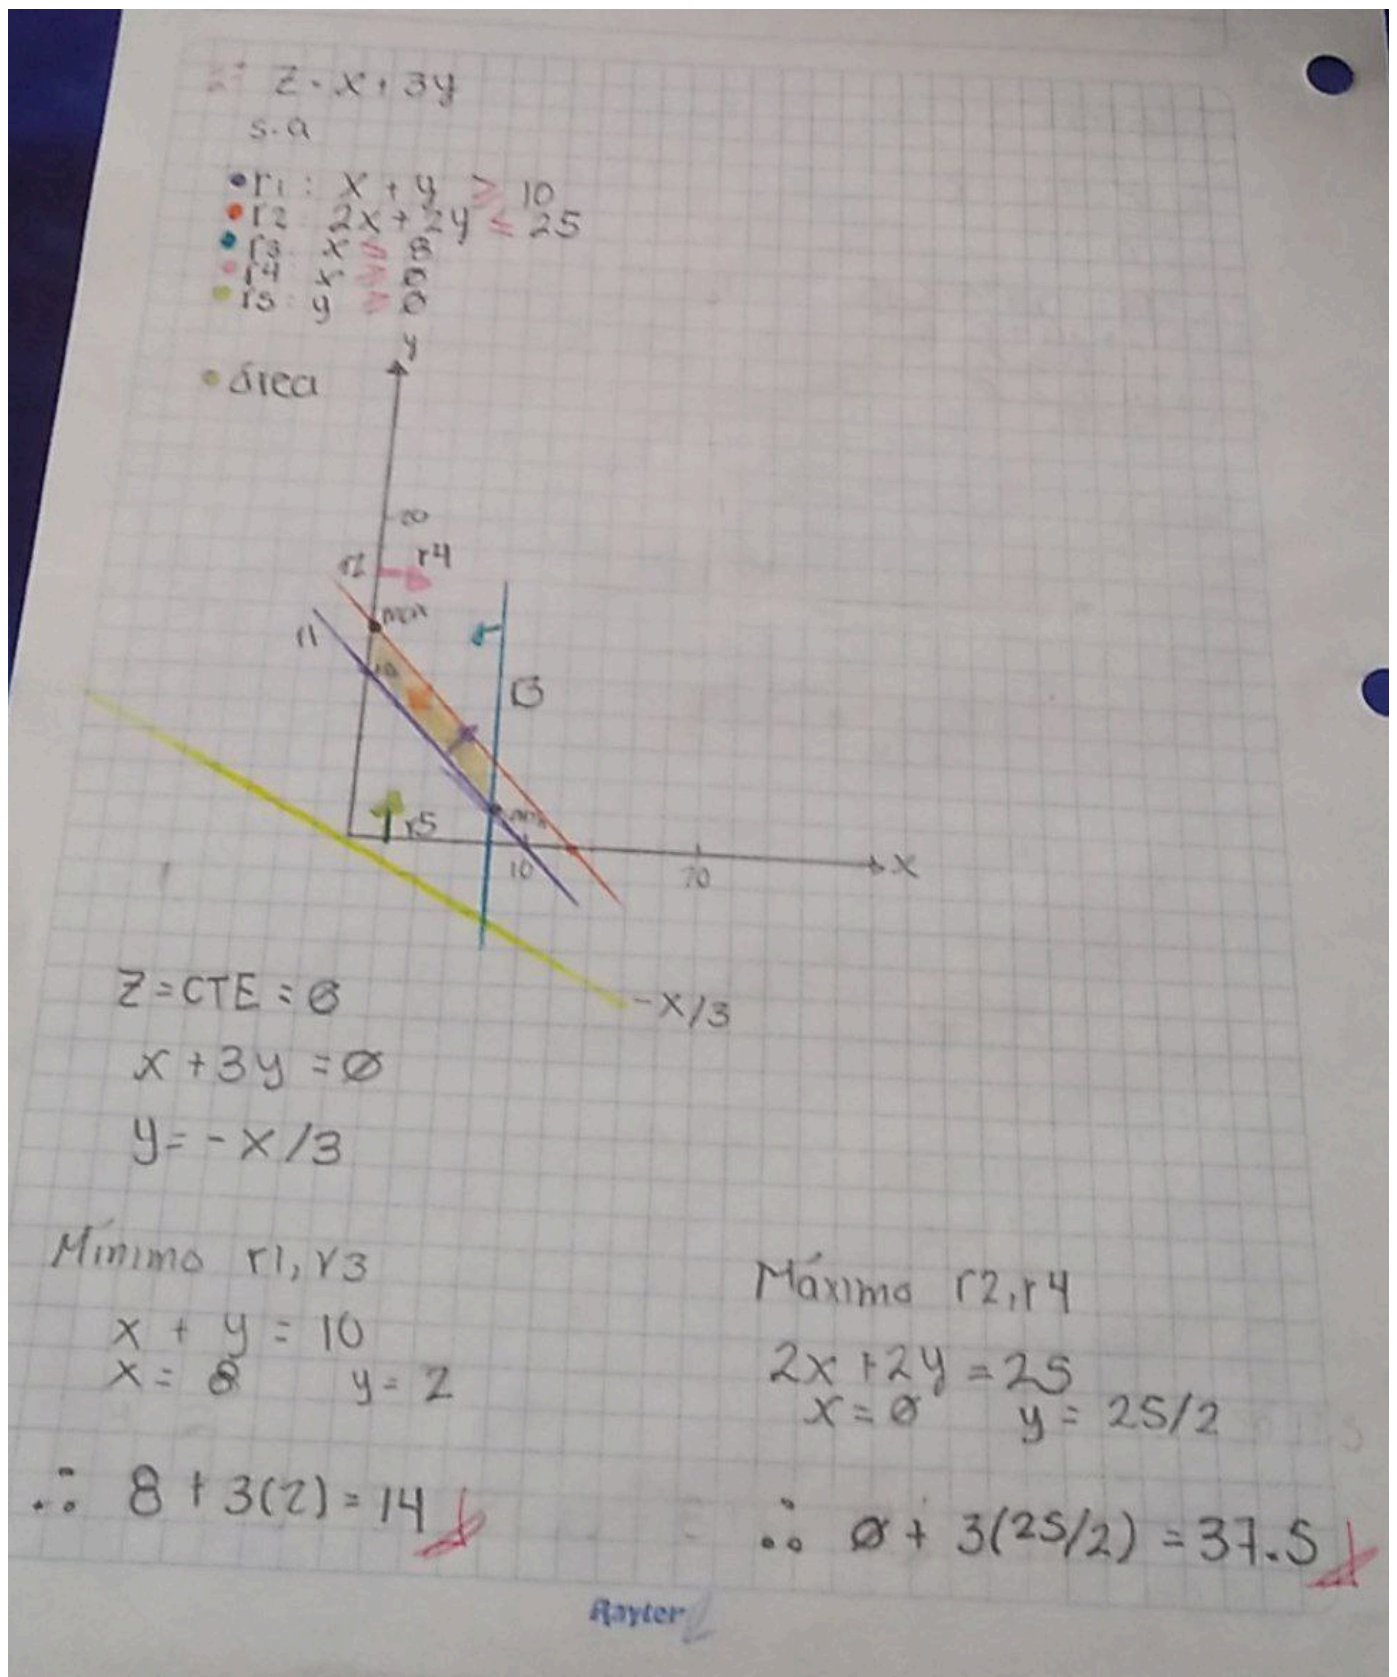 z = x + 3y
s.a
r1 : x + y ≥ 10
r2 2x + 2y ≤ 25
r3 x ≤ 8
r4 x ≥ 0
r5 y ≥ 0
y
área
20
r2
r4
max
r1
10
r3
r5
10
20
x
-x/3
Z = CTE = 0
x + 3y = 0
y = -x/3
Mínimo r1, r3
x + y = 10
x = 8 y = 2
∴ 8 + 3(2) = 14
Máximo r2, r4
2x + 2y = 25
x = 0 y = 25/2
∴ 0 + 3(25/2) = 37.5
Rayter